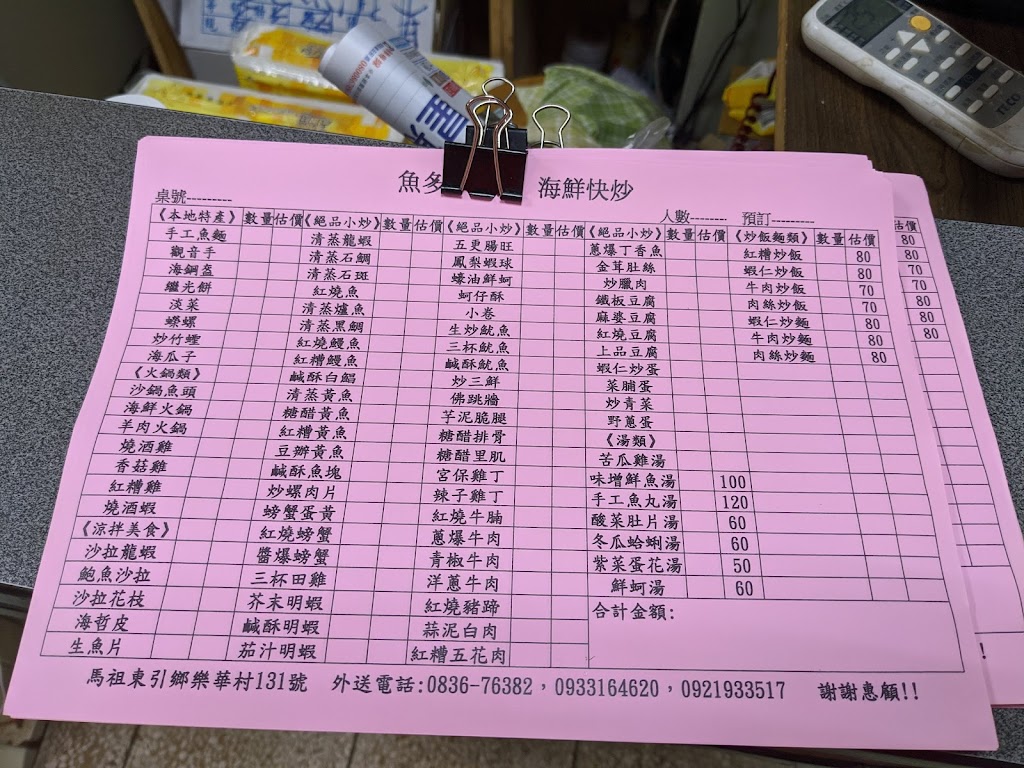 魚多 海鮮快炒
桌號--------- 人數-------- 預訂---------
《本地特產》 數量 估價 《絕品小炒》 數量 估價 《絕品小炒》 數量 估價 《絕品小炒》 數量 估價 《炒飯麵類》 數量 估價
手工魚麵 清蒸龍蝦 五更腸旺 蔥爆丁香魚 紅糟炒飯 80
觀音手 清蒸石鯛 鳳梨蝦球 金茸肚絲 蝦仁炒飯 80
海鋼盔 清蒸石斑 蠔油鮮蚵 炒臘肉 牛肉炒飯 70
繼光餅 紅燒魚 蚵仔酥 鐵板豆腐 肉絲炒飯 70
淡菜 清蒸爐魚 小卷 麻婆豆腐 蝦仁炒麵 80
蠑螺 清蒸黑鯛 生炒魷魚 紅燒豆腐 牛肉炒麵 80
炒竹蟶 紅燒鰻魚 三杯魷魚 上品豆腐 肉絲炒麵 80
海瓜子 紅糟鰻魚 鹹酥魷魚 蝦仁炒蛋
《火鍋類》 鹹酥白鯧 炒三鮮 菜脯蛋
沙鍋魚頭 清蒸黃魚 佛跳牆 炒青菜
海鮮火鍋 糖醋黃魚 芋泥脆腿 野蔥蛋
羊肉火鍋 紅糟黃魚 糖醋排骨 《湯類》
燒酒雞 豆瓣黃魚 糖醋里肌 苦瓜雞湯
香菇雞 鹹酥魚塊 宮保雞丁 味增鮮魚湯 100
紅糟雞 炒螺肉片 辣子雞丁 手工魚丸湯 120
燒酒蝦 螃蟹蛋黃 紅燒牛腩 酸菜肚片湯 60
《涼拌美食》 紅燒螃蟹 蔥爆牛肉 冬瓜蛤蜊湯 60
沙拉龍蝦 醬爆螃蟹 青椒牛肉 紫菜蛋花湯 50
鮑魚沙拉 三杯田雞 洋蔥牛肉 鮮蚵湯 60
沙拉花枝 芥末明蝦 紅燒豬蹄 合計金額:
海哲皮 鹹酥明蝦 蒜泥白肉
生魚片 茄汁明蝦 紅糟五花肉
馬祖東引鄉樂華村131號 外送電話:0836-76382，0933164620，0921933517 謝謝惠顧!!
估價
80
80
70
70
80
80
80
!
TECO